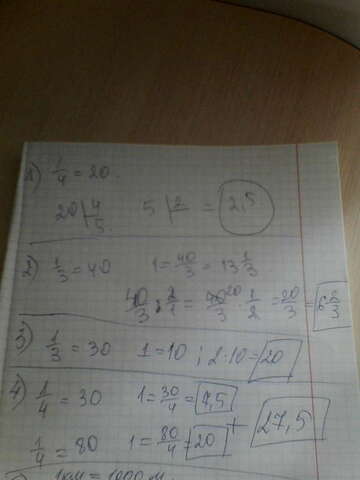 1) 1/4 = 20.
20 | 4
5.
5 | 2 = 2,5
2) 1/3 = 40 1 = 40/3 = 13 1/3
40/3 : 2/1 = 40/3 20 · 1/2 = 20/3 = 6 2/3
3) 1/3 = 30 1 = 10 ; 2·10 = 20
4) 1/4 = 30 1 = 30/4 = 7,5
+ 27,5
1/4 = 80 1 = 80/4 = 20
1км = 1000 м